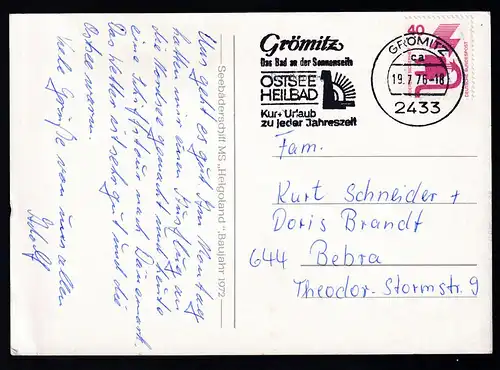 Uns geht es gut. Am Montag
hatten wir einen Ausflug an
die Nordsee gemacht und heute
eine Schiffstour nach Dänemark.
Das Wetter ist sehr gut und die
Ostsee warm.
Viele Grüße von uns allen
Adolf
Seebäderschiff MS „Helgoland", Baujahr 1972
Grömitz
Das Bad an der Sonnenseite
OSTSEE
HEILBAD
Kur+Urlaub
zu jeder Jahreszeit
GRÖMITZ
ca
19.7.76-18
2433
40
Fam.
Kurt Schneider +
Doris Brandt
644 Bebra
Theodor-Stormstr. 9